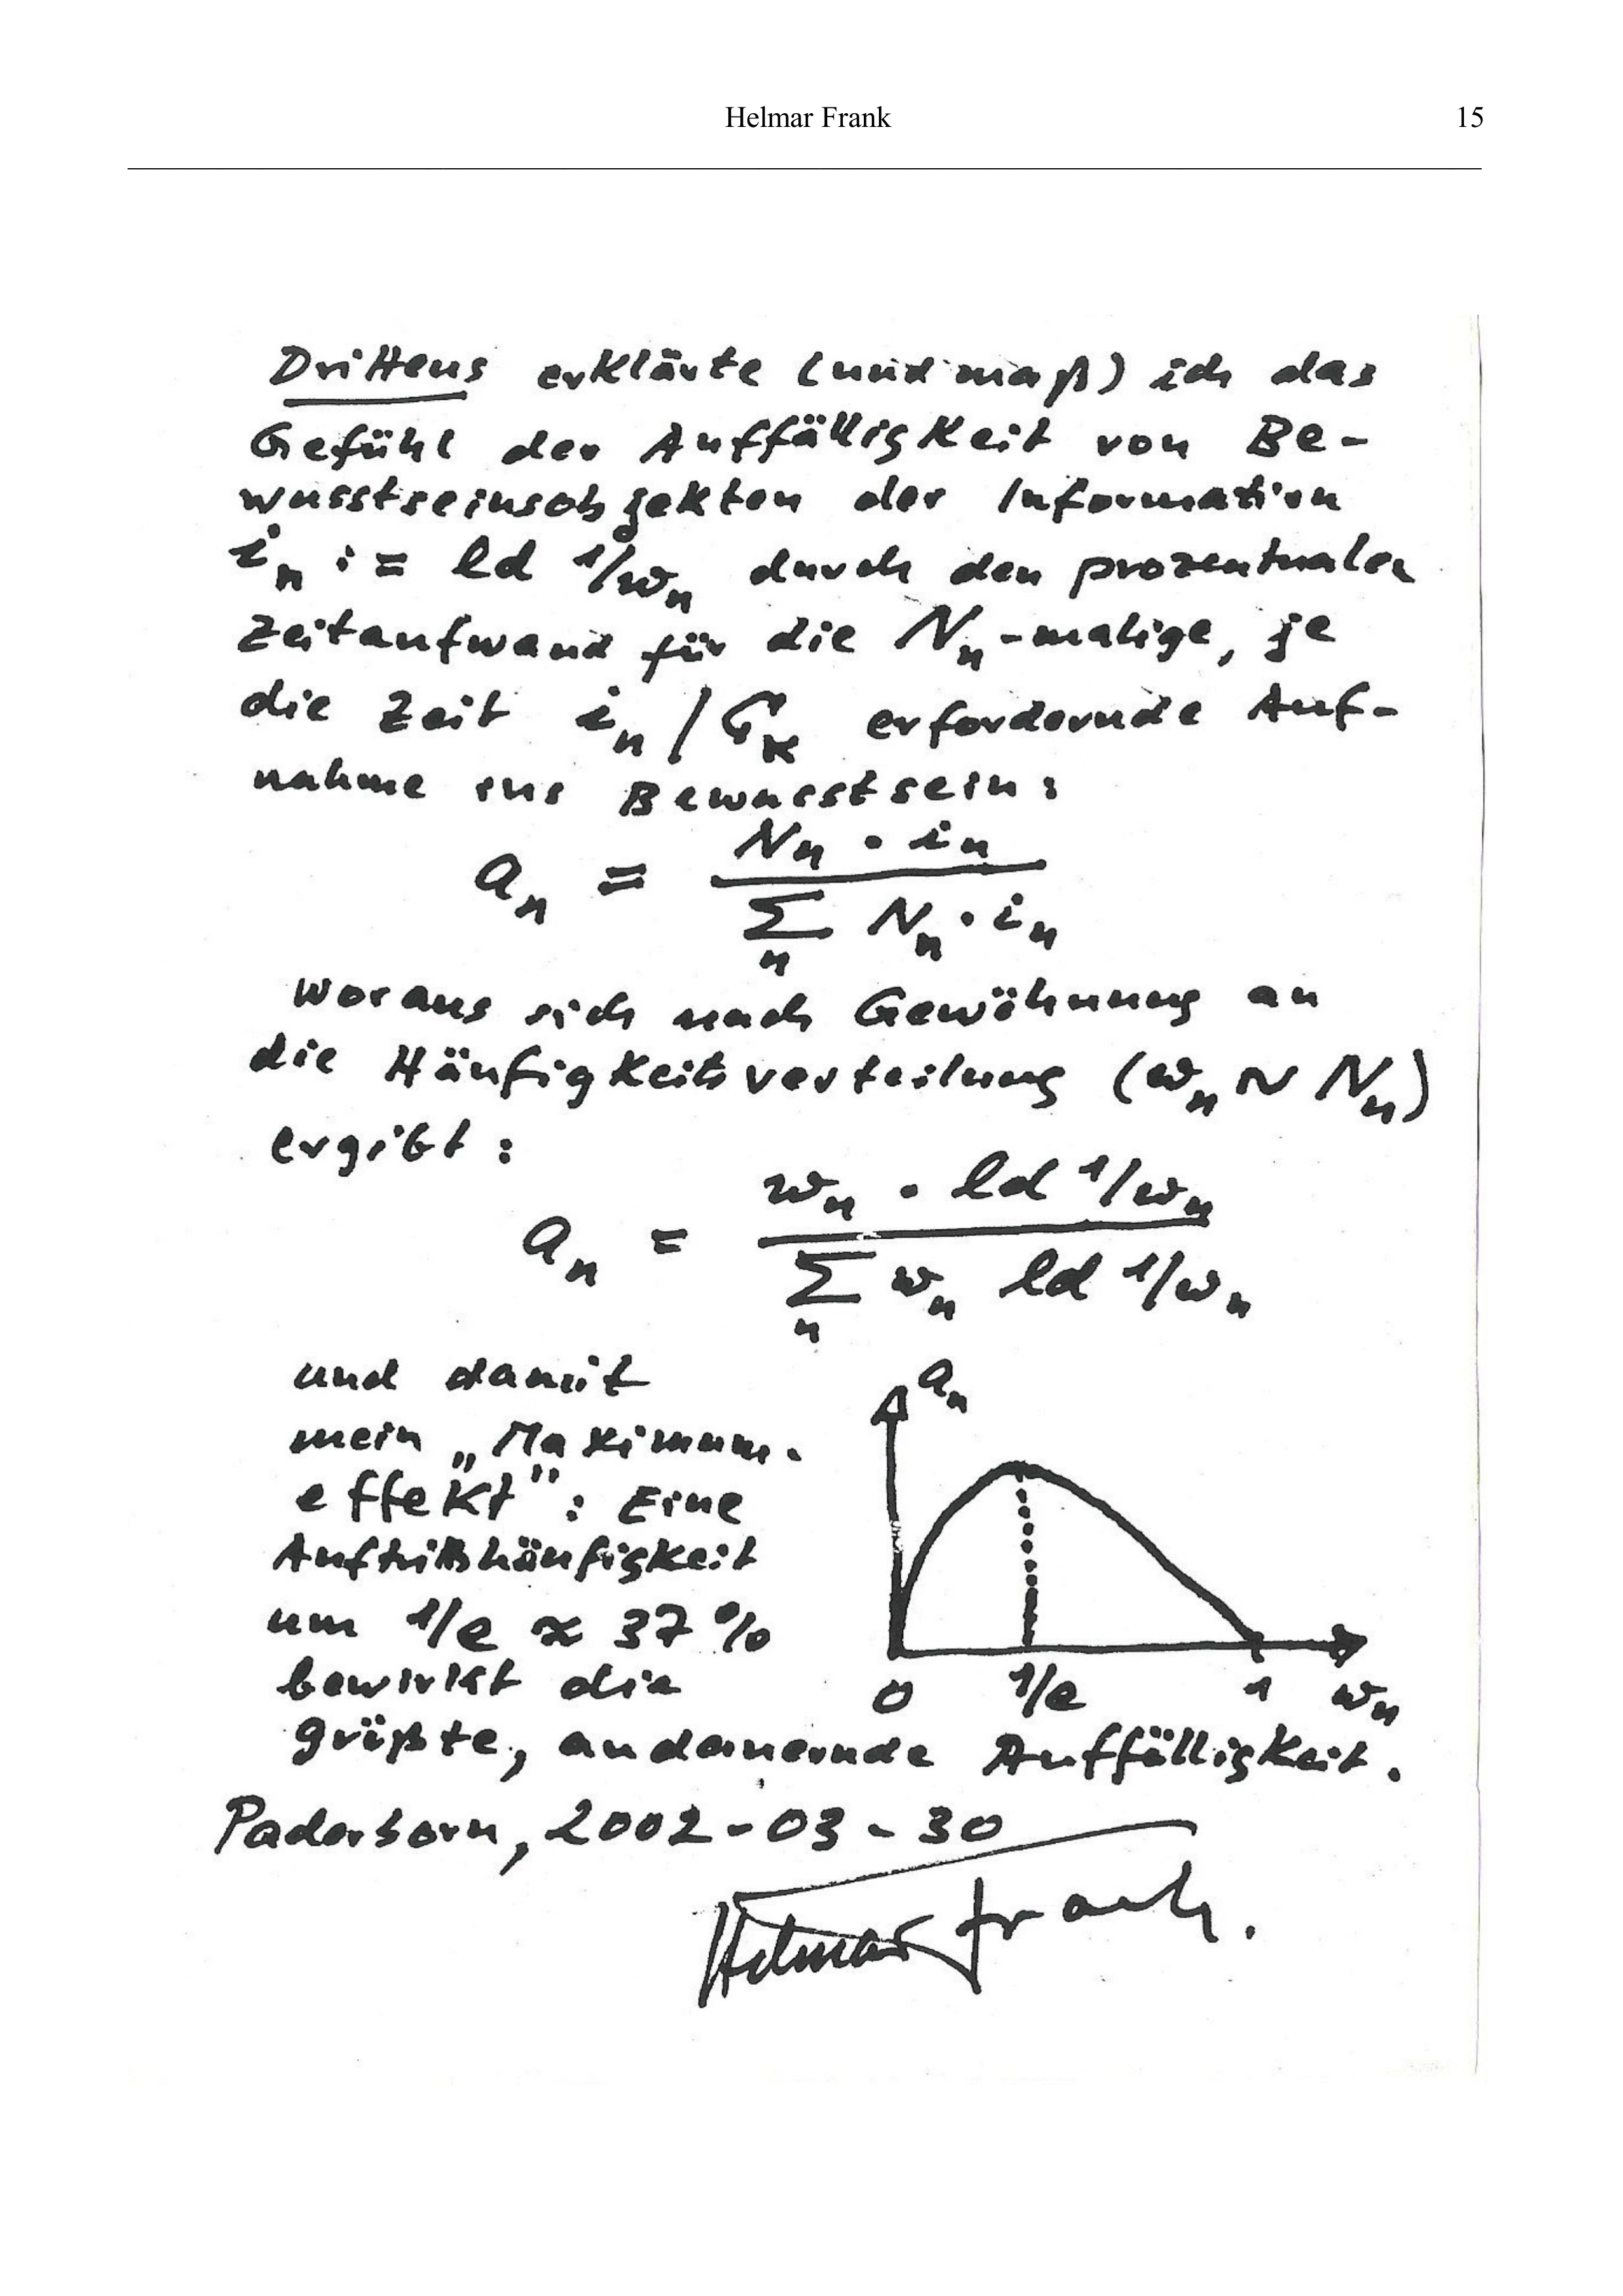 Helmar Frank 15
Drittens erklärte (und maß) ich das
Gefühl der Auffälligkeit von Be-
wusstseinsobjekten der Information
i_n := ld 1/w_n durch den prozentualen
Zeitaufwand für die N_n-malige, je
die Zeit i_n / C_K erfordernde Auf-
nahme ins Bewusstsein:
a_n = N_n · i_n / Σ_n N_n · i_n
woraus sich nach Gewöhnung an
die Häufigkeitsverteilung (w_n ~ N_n)
ergibt:
a_n = w_n · ld 1/w_n / Σ_n w_n ld 1/w_n
und damit
mein „Maximum-
effekt": Eine
Auftrittshäufigkeit
um 1/e ≈ 37 %
bewirkt die
größte, andauernde Auffälligkeit.
a_n
0 1/e 1 w_n
Paderborn, 2002-03-30
Helmar Frank.